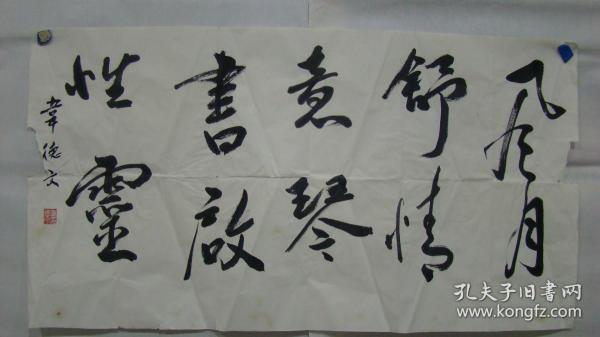 風月
舒情
意琴
書啟
性靈
韋德文
孔夫子旧书网
www.kongfz.com